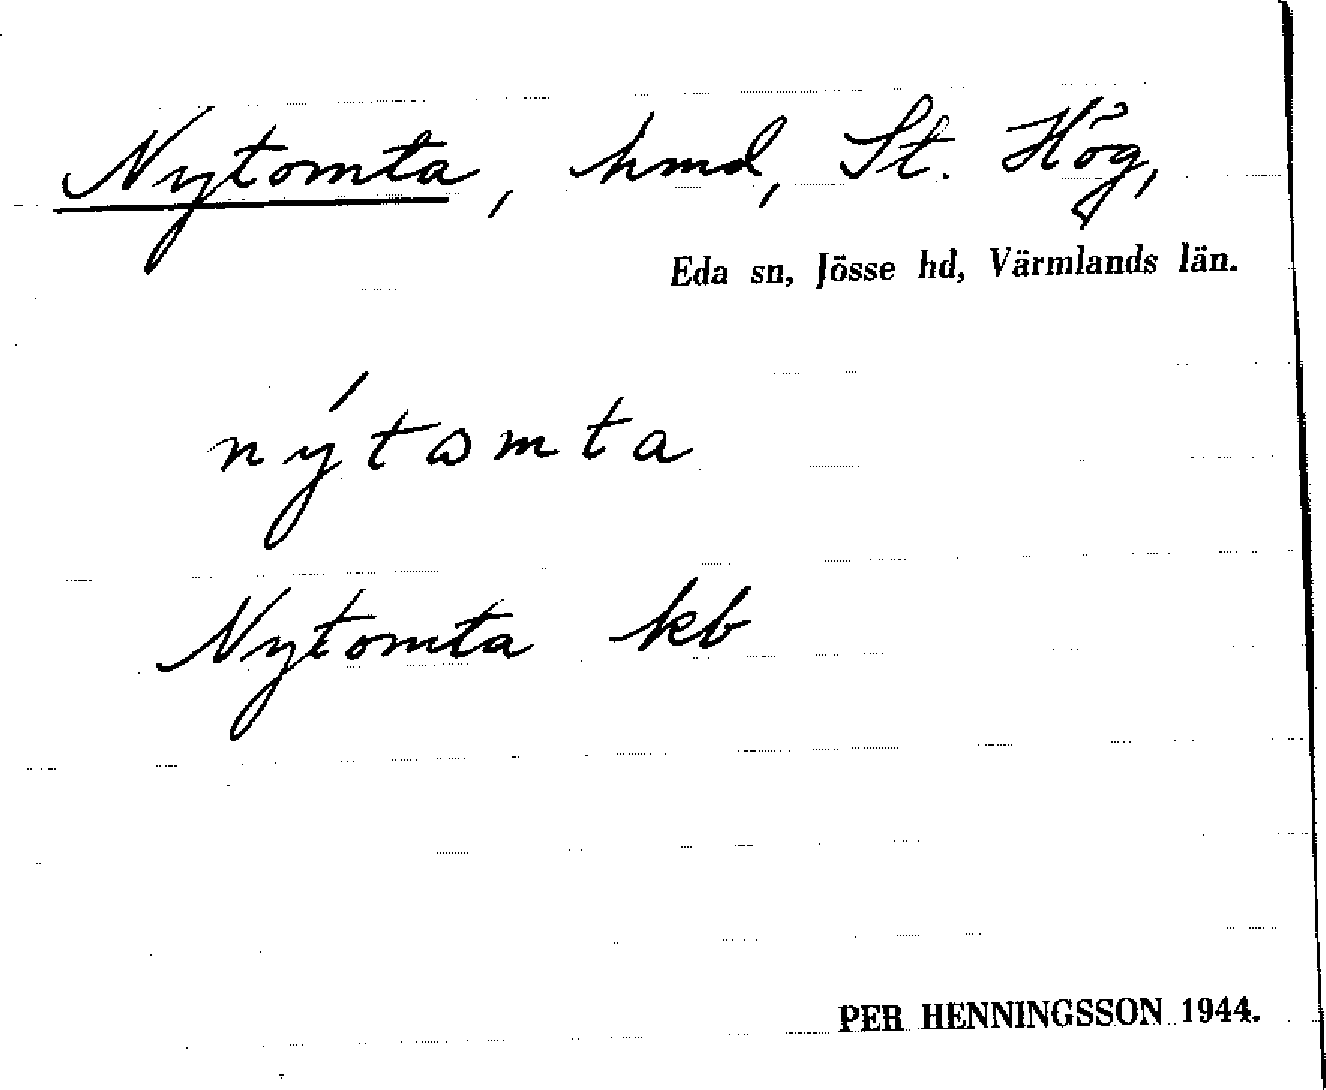 Nytomta, hmd, St. Hög,
Eda sn, Jösse hd, Värmlands län.
nýtωmta
Nytomta kb
PER HENNINGSSON 1944.